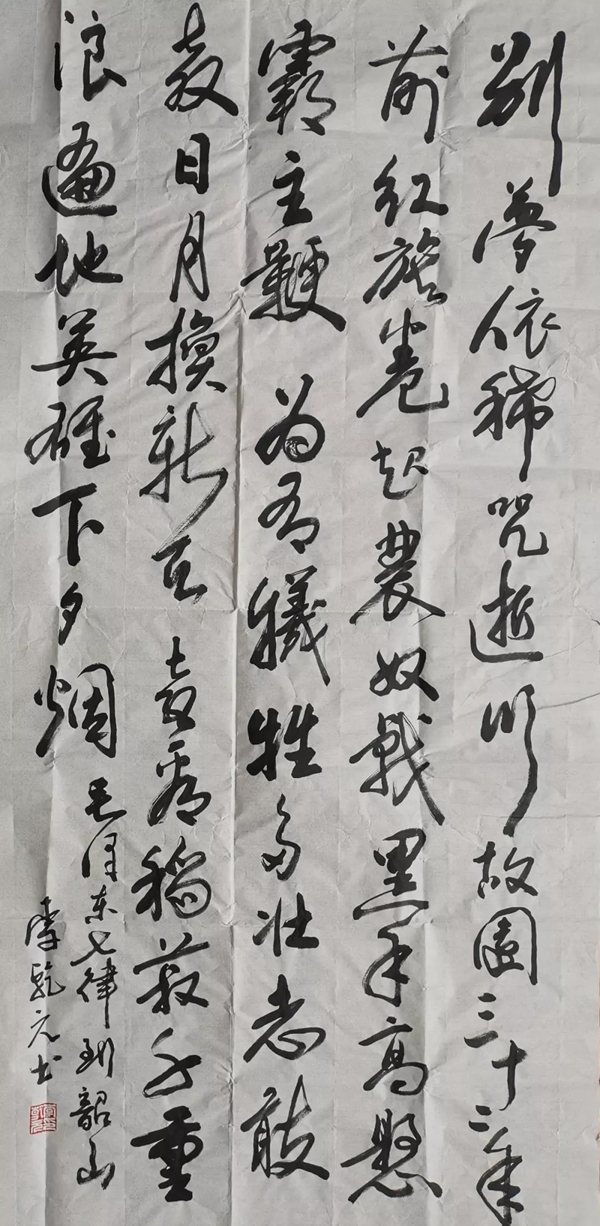 别夢依稀咒逝川故園三十二年
前红旗卷起農奴戟黑手高懸
霸主鞭为有犧牲多壮志敢
教日月換新天喜看稻菽千重
浪遍地英雄下夕烟毛泽东七律到韶山
李乾元书